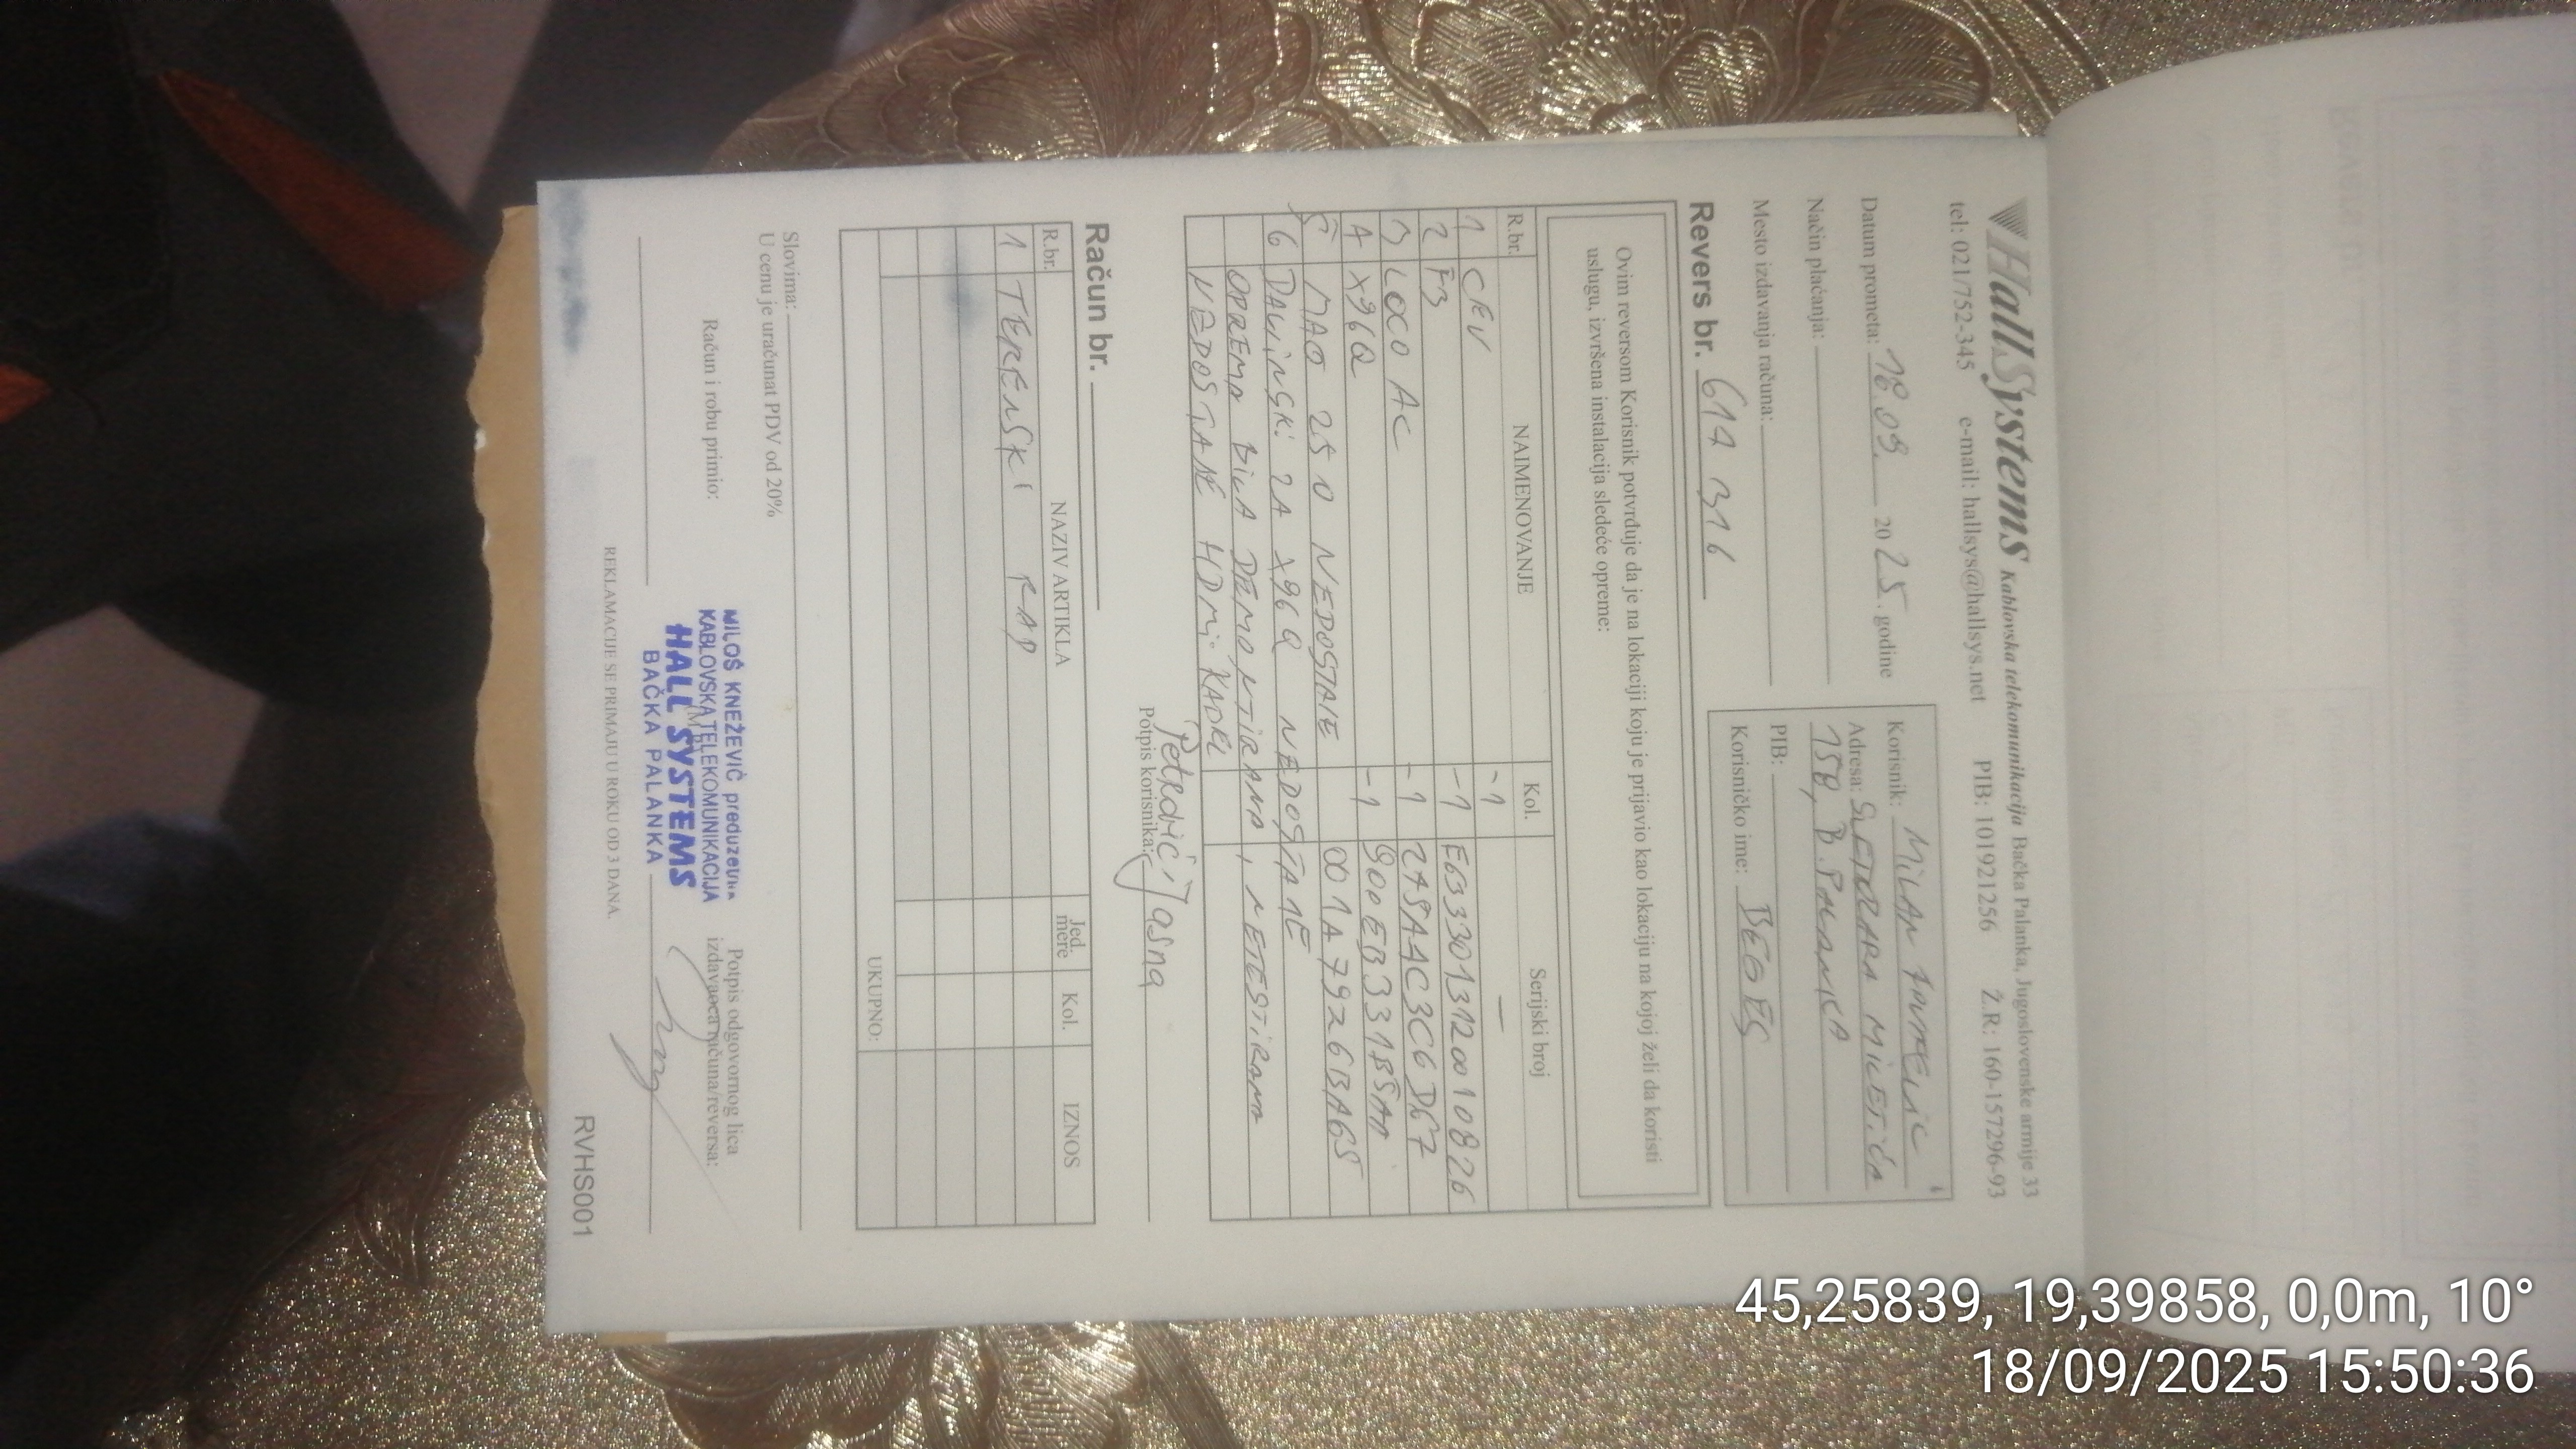 HallSystems Kablovska telekomunikacija Bačka Palanka, Jugoslovenske armije 33
tel: 021/752-345 e-mail: hallsys@hallsys.net PIB: 101921256 Ž.R: 160-157296-93
Datum prometa: 18.09. 2025. godine
Način plaćanja:
Mesto izdavanja računa:
Korisnik: MILAN
Adresa: SVETOZARA MILETIĆA
158, B. PALANKA
PIB:
Korisničko ime: BEOES
Revers br. 614 316
Ovim reversom Korisnik potvrđuje da je na lokaciji koju je prijavio kao lokaciju na kojoj želi da koristi
uslugu, izvršena instalacija sledeće opreme:
R.br. NAIMENOVANJE Kol. Serijski broj
1 CEV -1 —
2 F3 -1 E6333013120010826
3 LOCO AC -1 245A4C3C6DC7
4 X96Q -1 900EB33185AA
5 MAG 250 NEDOSTAJE 001A7926BA65
6 DALJINSKI ZA X96Q NEDOSTAJE
OPREMA BILA DEMONTIRANA, NETESTIRANA
NEDOSTAJE HDMI KABEL
Potpis korisnika: Petković Jasna
Račun br.
R.br. NAZIV ARTIKLA Jed. mere Kol. IZNOS
1 TERENSKI RAD
UKUPNO:
Slovima:
U cenu je uračunat PDV od 20%
Račun i robu primio:
MILOŠ KNEŽEVIĆ preduzetnik
KABLOVSKA TELEKOMUNIKACIJA
HALL SYSTEMS
BAČKA PALANKA
Potpis odgovornog lica
izdavaoca računa/reversa:
REKLAMACIJE SE PRIMAJU U ROKU OD 3 DANA.
RVHS001
45,25839, 19,39858, 0,0m, 10°
18/09/2025 15:50:36